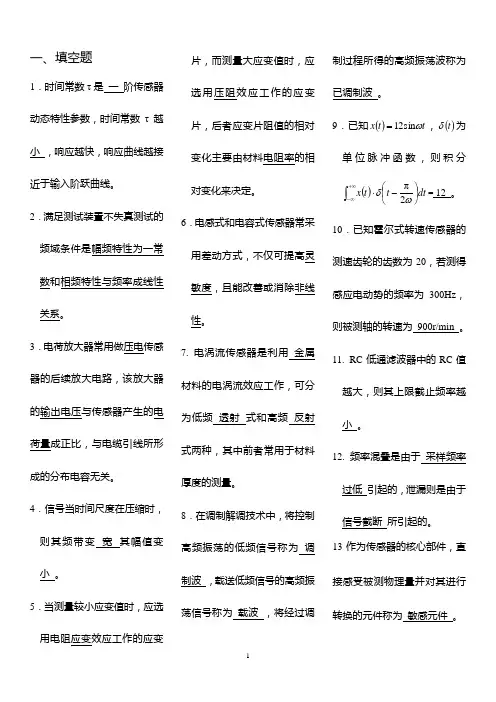 一、填空题
1．时间常数τ是 一 阶传感器
动态特性参数，时间常数τ越
小 ，响应越快，响应曲线越接
近于输入阶跃曲线。
2．满足测试装置不失真测试的
频域条件是幅频特性为一常
数和相频特性与频率成线性
关系。
3．电荷放大器常用做压电传感
器的后续放大电路，该放大器
的输出电压与传感器产生的电
荷量成正比，与电缆引线所形
成的分布电容无关。
4．信号当时间尺度在压缩时，
则其频带变 宽 其幅值变
小 。
5．当测量较小应变值时，应选
用电阻应变效应工作的应变
片，而测量大应变值时，应
选用压阻效应工作的应变
片，后者应变片阻值的相对
变化主要由材料电阻率的相
对变化来决定。
6．电感式和电容式传感器常采
用差动方式，不仅可提高灵
敏度，且能改善或消除非线
性。
7. 电涡流传感器是利用 金属
材料的电涡流效应工作，可分
为低频 透射 式和高频 反射
式两种，其中前者常用于材料
厚度的测量。
8．在调制解调技术中，将控制
高频振荡的低频信号称为 调
制波 ，载送低频信号的高频振
荡信号称为 载波 ，将经过调
制过程所得的高频振荡波称为
已调制波 。
9．已知x(t)=12sinωt，δ(t)为
单位脉冲函数，则积分
∫_{-∞}^{+∞} x(t)·δ(t−π/2ω)dt=12 。
10．已知霍尔式转速传感器的
测速齿轮的齿数为20，若测得
感应电动势的频率为 300Hz，
则被测轴的转速为 900r/min 。
11. RC低通滤波器中的RC值
越大，则其上限截止频率越
小 。
12. 频率混叠是由于 采样频率
过低 引起的，泄漏则是由于
信号截断 所引起的。
13作为传感器的核心部件，直
接感受被测物理量并对其进行
转换的元件称为 敏感元件 。
1